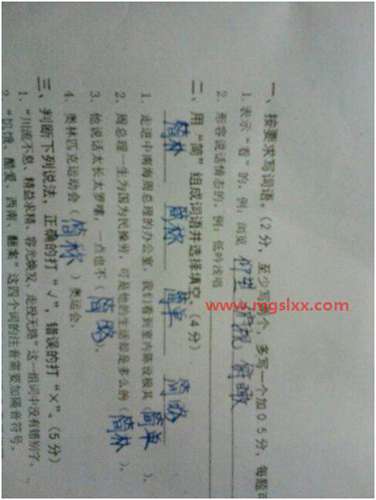 一、按要求写词语。(2分,至少写 个,多写一个加0.5分,每题
1. 表示“看”的,例:闻见 仰望 俯视 俯瞰
2. 形容说话情态的,例:低吟浅唱
二、用“简”组成词语并选择填空。(4分)
简朴 简称 简单 简略
1. 走进中南海周总理的办公室,我们看到室内陈设极其(简单)
2. 周总理一生为国为民操劳,可是他的生活却是多么的(简朴)
3. 他说话太长太罗嗦,一点也不(简略)。
4. 奥林匹克运动会(简称)奥运会。
三、判断下列说法,正确的打“√”,错误的打“×”。(5分)
1. “川流不息、精益求精、容光焕发、走投无路”这一组词中没有错别字。
2. “饥饿、酷爱、西南、翻案”这四个词的注音需要加隔音符号。
www.mgslxx.com